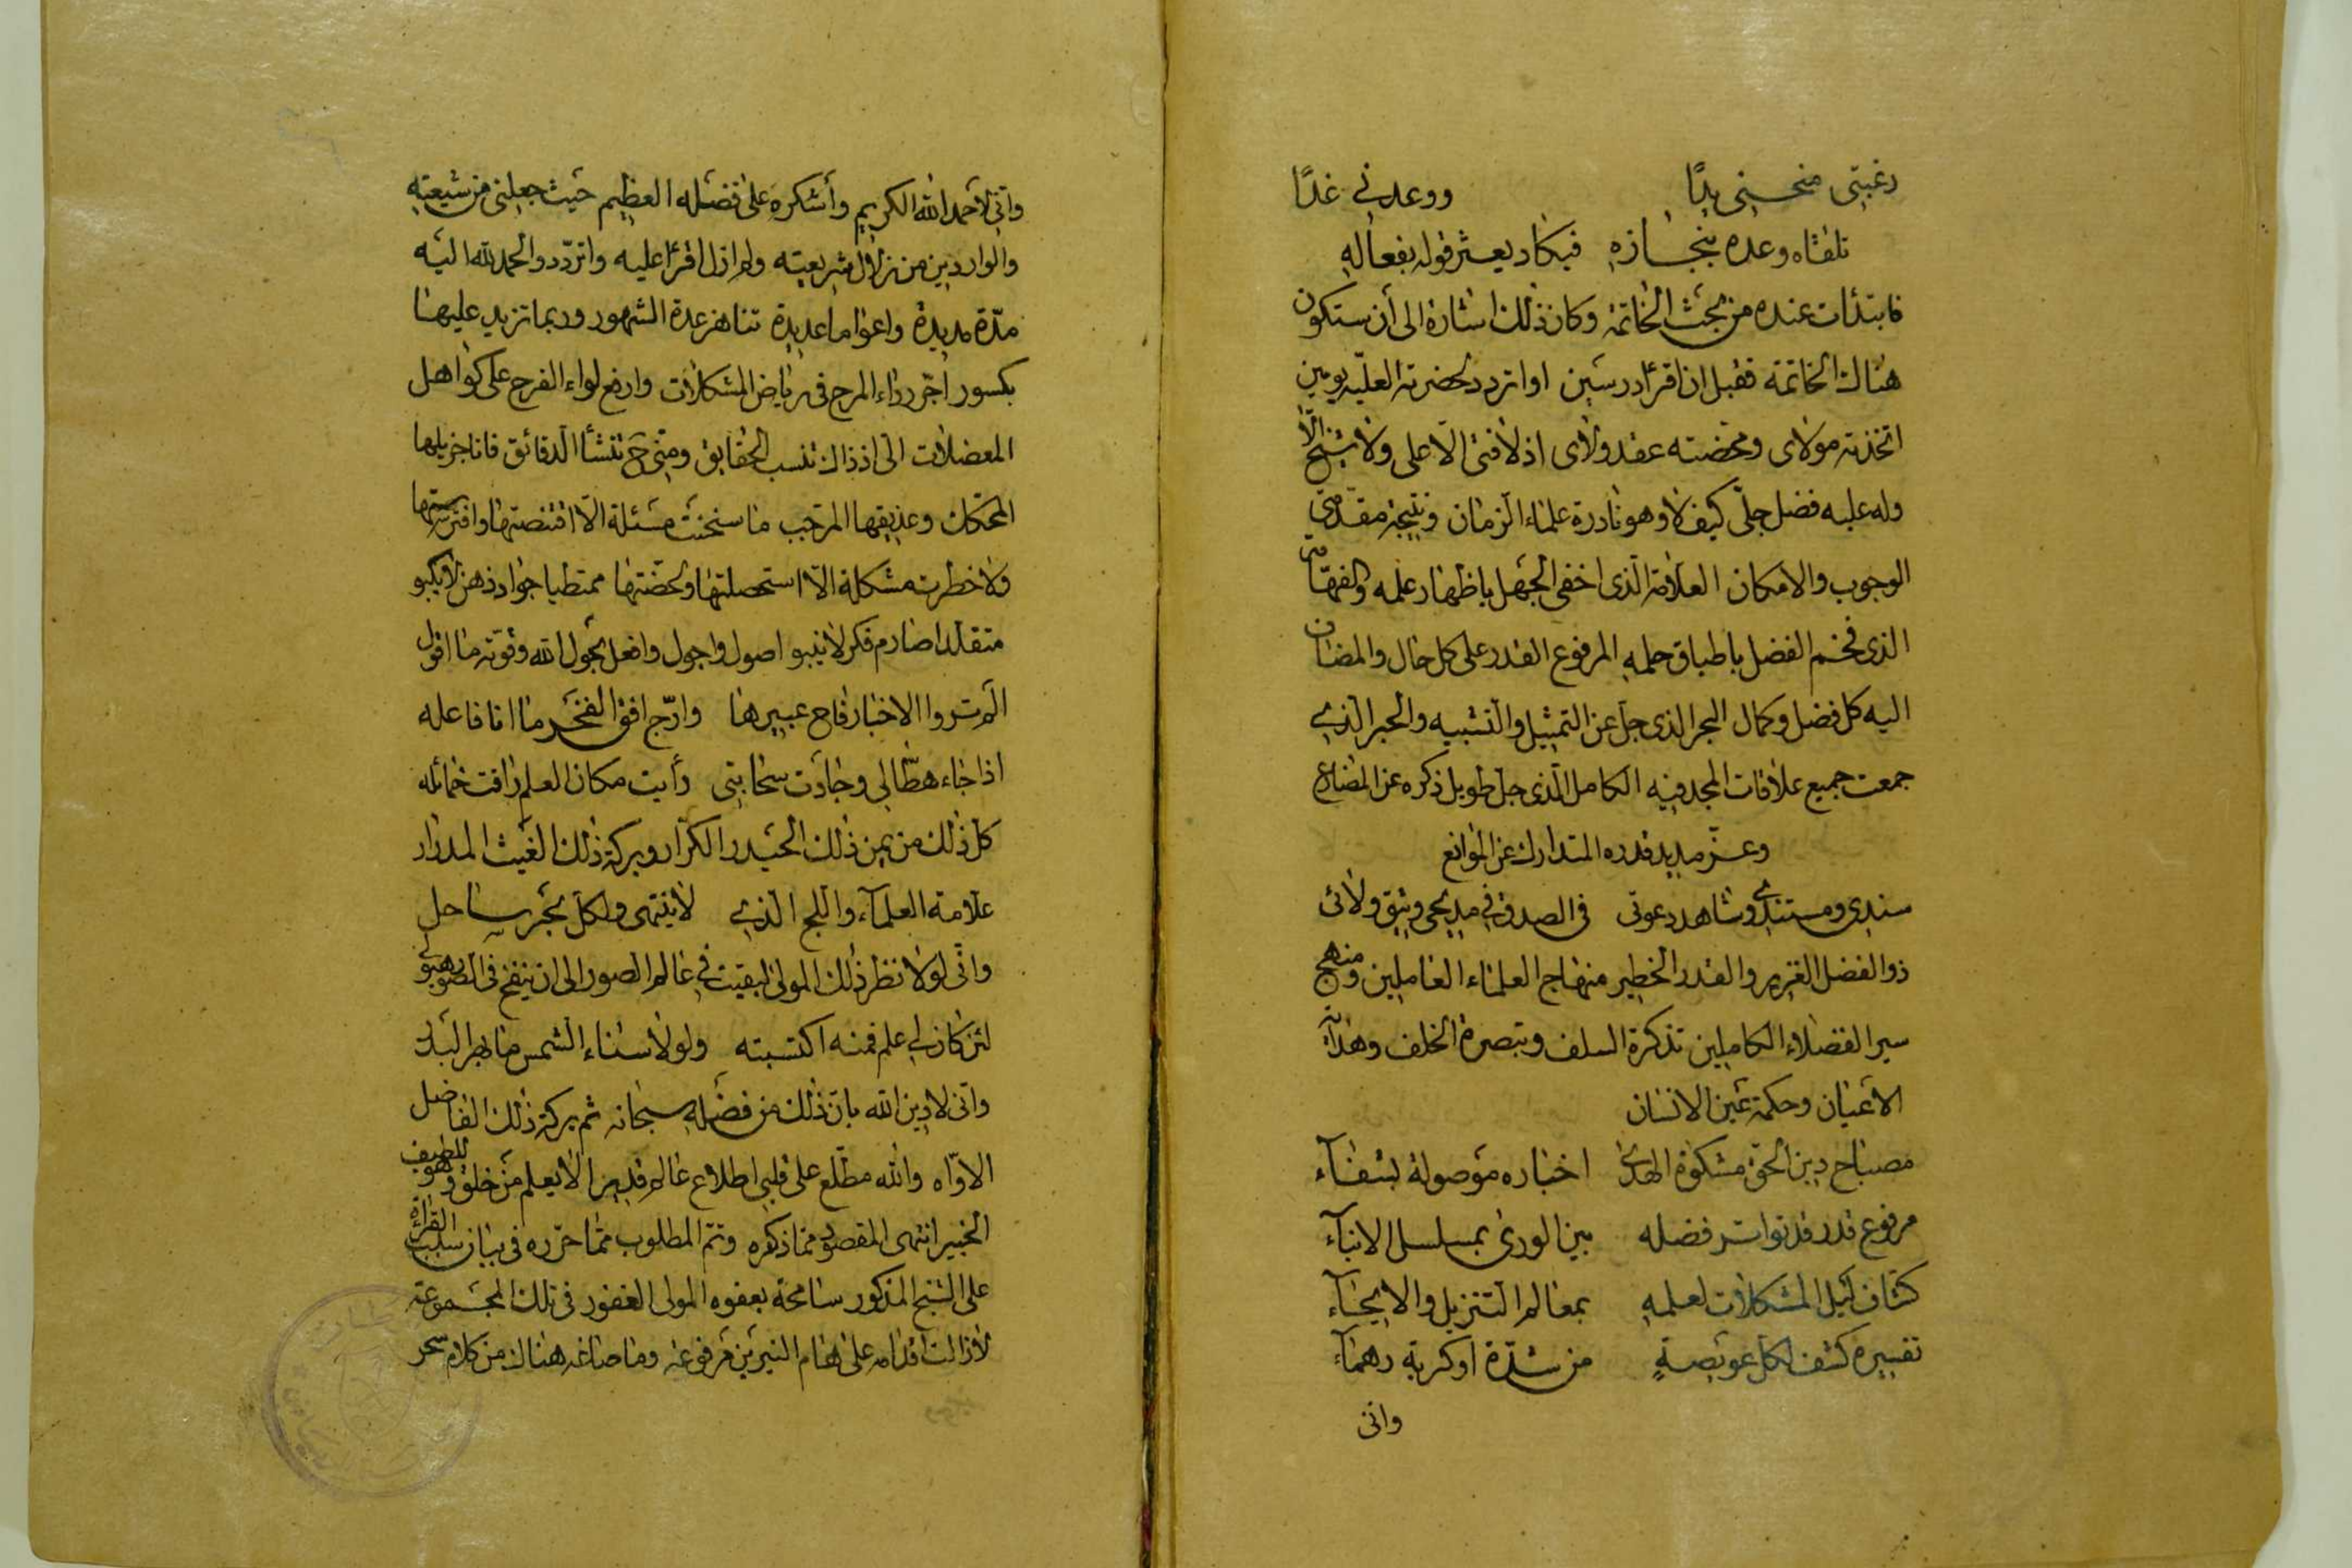 رغبتى منحنى يدًا ووعدنى غدًا
تلقاه وعده بنجازه فيكاد يعثر قوله بفعاله
فابتدأت عنده من بحث الخاتمة وكان ذلك اشارة الى أن ستكون
هناك الخاتمة فقبل ان اقرأ درسين او اتردد لحضرته العليّه يومين
اتخذته مولاى ومحّضته عقد ولاى اذ لا فتى الّا على ولا شيخ الّا
وله عليه فضل جلىّ كيف لا وهو نادرة علماء الزمان ونتيجة مقدّمتى
الوجوب والامكان العلّامة الّذى اخفى الجهل باظهار علمه والفهّامة
الذى فخم الفضل باطباق حلمه المرفوع القدر على كل حال والمضاف
اليه كل فضل وكمال البحر الذى جل عن التمثيل والتشبيه والحبر الّذى
جمعت جميع علاقات المجد فيه الكامل الّذى جل طويل ذكره عن المضارع
وعزّ مديد قدره المتدارك عن الموانع
سندى ومستندى وشاهد دعوتى فى الصدق فى مديحى وثيق ولائى
ذو الفضل الغزير والقدر الخطير منهاج العلماء العاملين ومنهج
سير الفضلاء الكاملين تذكرة السلف وتبصرة الخلف وهداية
الاعيان وحكمة عين الانسان
مصباح دين الحقّ مشكوة الهدى اخباره موصولة بشفآء
مرفوع قدر قد تواتر فضله بين الورى بمسلسل الانبآء
كشّاف ليل المشكلات لعلمه بمعالم التنزيل والايحآء
تفسيره كشف لكل عويصةٍ من شدّة او كربة دهمآء
وانى
وانّى لأحمد الله الكريم وأشكره على فضله العظيم حيث جعلنى من شيعته
والواردين من نزلال شريعته ولم ازل اقرأ عليه واتردّد والحمد لله اليه
مدّة مديدة واعواما عديدة تناهز عدة الشهور وربما تزيد عليها
بكسور اجرّ رداء المرح فى رياض المشكلات وارفع لواء الفرح على كواهل
المعضلات الىّ اذ ذاك تنسب الحقايق ومنّى ح تنشأ الدقائق فانا جذيلها
المحكك وعذيقها المرجب ما سنحت مسئلة الّا اقتنصتها وافترستها
ولا خطرت مشكلة الّا استحصلتها ولخصّتها ممتطيا جواد ذهن لا يكبو
متقلدا صارم فكر لا ينبو اصول واجول وافعل بحول الله وقوّته ما اقول
الم تروا الاخبار فاح عبيرها وارّج افق الفخر ما انا فاعله
اذا جاء هطّالى وجادت سحابتى رأيت مكان العلم راقت خمائله
كل ذلك من يمن ذلك الحيدر الكرّار وبركة ذلك الغيث المدرار
علامة العلمآء واللج الّذى لا ينتهى ولكلّ بحر ساحل
وانّى لولا نظر ذلك المولى لبقيت فى عالم الصور الى ان ينفخ فى الصور
لئن كان لى علم فمنه اكتسبته ولولا سناء الشمس ما بهر البدر
وانّى لادين الله بانّ ذلك من فضله سبحانه ثم بركة ذلك الفاضل
الاوّاه والله مطّلع على قلبى اطلاع عالم قدير الا يعلم من خلق وهو اللطيف
الخبير انتهى المقصود مما ذكره وتمّ المطلوب ممّا حرّره فى بيان سبب القرأة
على الشيخ المذكور سامحه بعفوه المولى الغفور فى تلك المجموعة
لا زالت اقدامه على هام النيرين مرفوعة وما صاغه هناك من كلام سحر